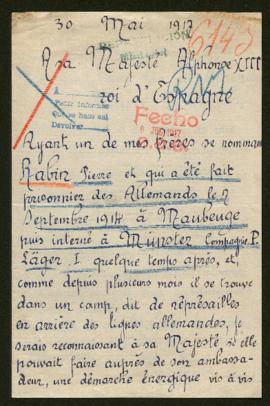 30 Mai 1917
6143
A sa Majesté Alphonse XIII
roi d'Espagne
A
Pedir informes
Que se haga así
Devolver
Fecho
1917
Ayant un de mes frères se nommant
Rabin Pierre et qui a été fait
prisonnier des Allemands le 7
Septembre 1914 à Maubeuge
puis interné à Münster Compagnie P.
Läger. I quelque temps après, et
comme depuis plusieurs mois il se trouve
dans un camp, dit de représailles
en arrière des lignes allemandes, je
serais reconnaissant à sa Majesté si elle
pouvait faire auprès de son ambassa-
deur, une démarche énergique vis à vis